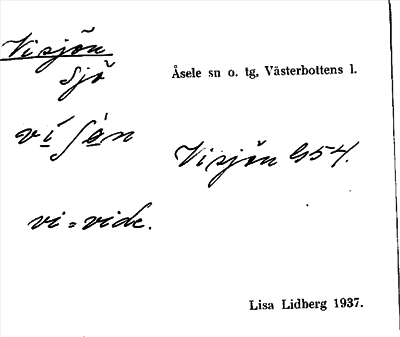 Visjön
Sjö
Åsele sn o. tg, Västerbottens l.
Visjön G54.
vi = vide.
Lisa Lidberg 1937.